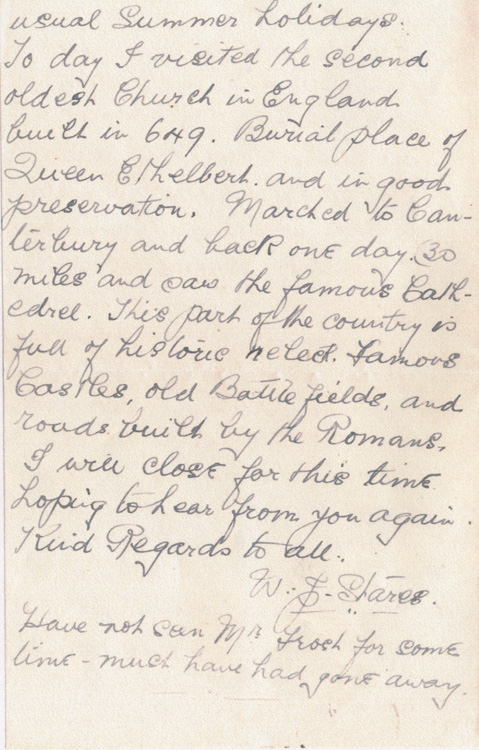 usual Summer holidays.
To day I visited the second
oldest Church in England
built in 649. Burial place of
Queen Ethelbert. and in good
preservation. Marched to Can-
terbury and back one day. 30
miles and saw the famous Cath-
edrel. This part of the country is
full of historic famous
Castles, old Battle fields, and
roads built by the Romans.
I will close for this time
hoping to hear from you again.
Kind Regards to all.
W. J.
Have not seen Mr Frost for some
time - must have had gone away.